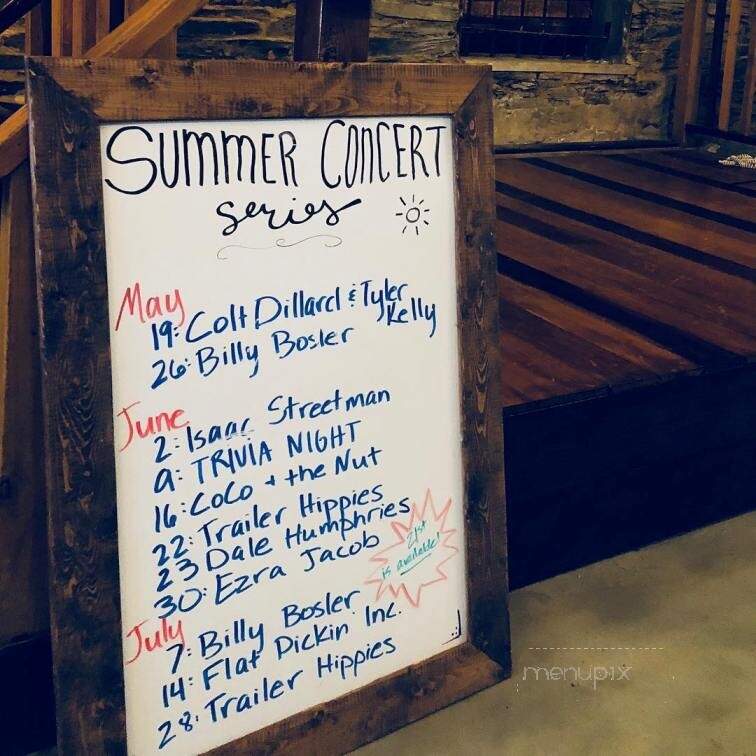 SUMMER CONCERT
series
May
19: Colt Dillard & Tyler
Kelly
26: Billy Bosler
June
2: Isaac Streetman
9: TRIVIA NIGHT
16: CoCo + the Nut
22: Trailer Hippies
23 Dale Humphries
30: Ezra Jacob
21st
is available!
July
7: Billy Bosler
14: Flat Pickin Inc.
28: Trailer Hippies
menupix